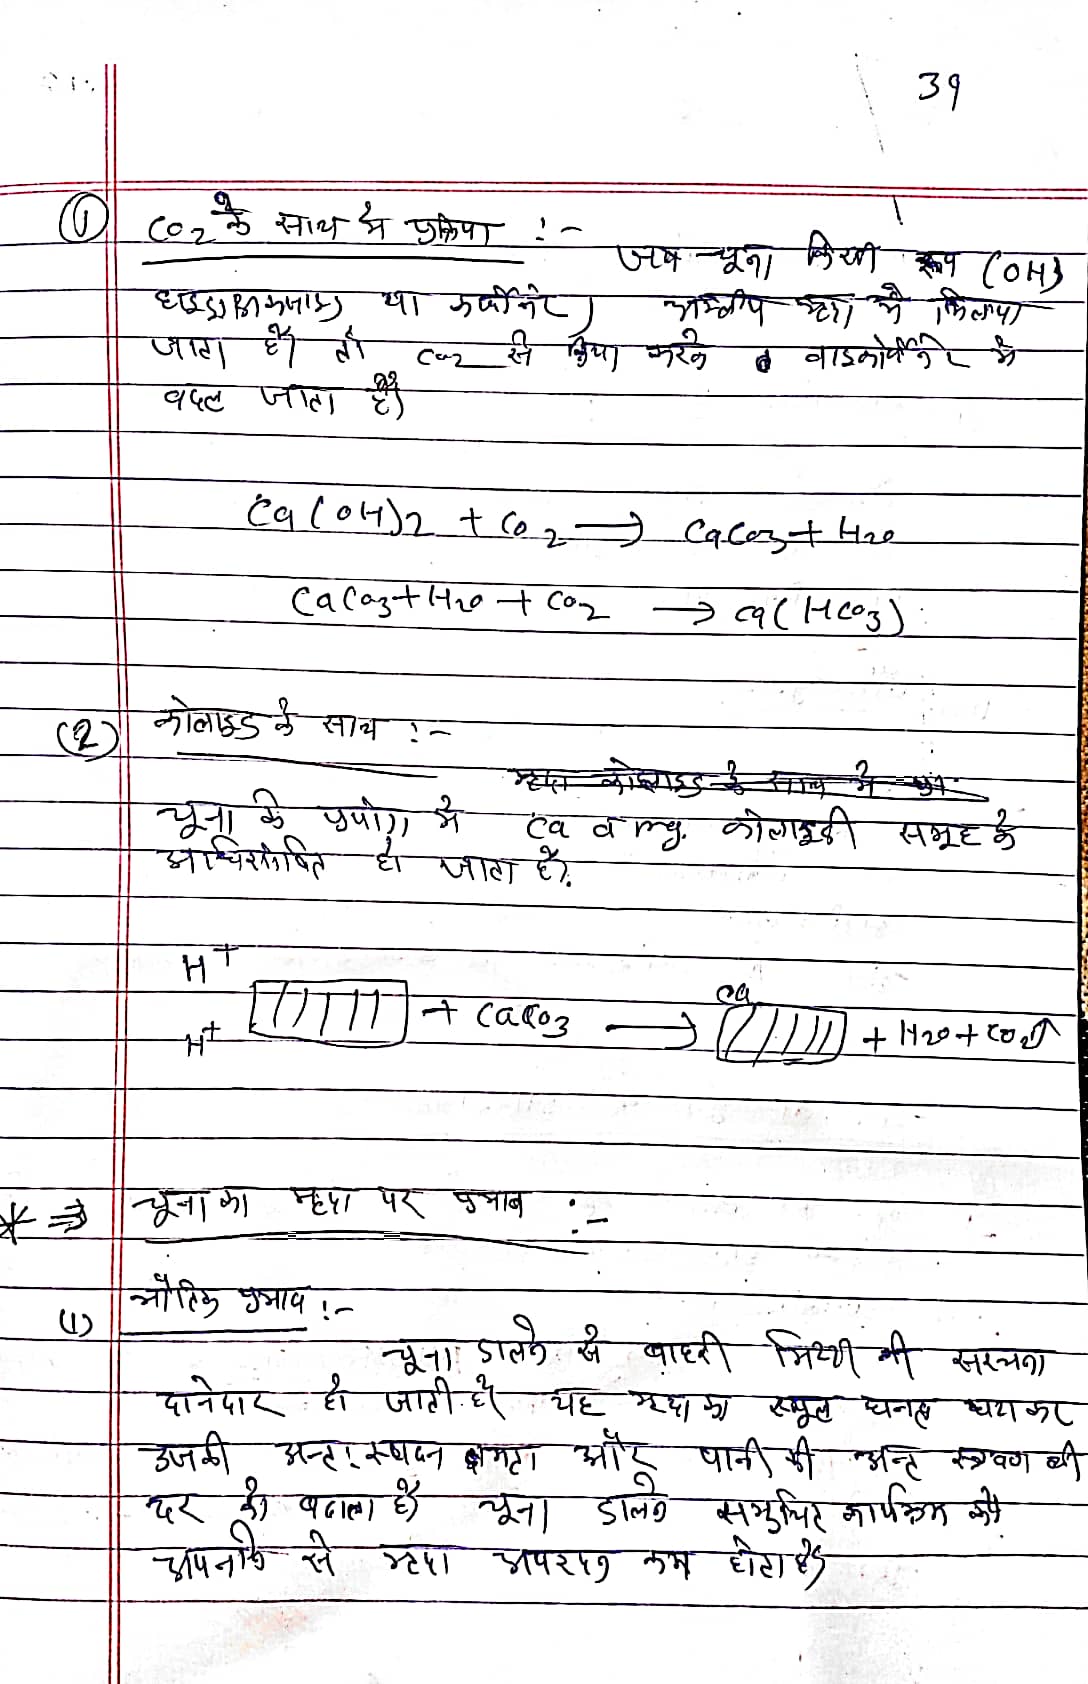 39
① CO2 के साथ मे प्रक्रिया :-
जब चूना किसी रूप (OH)
हाइड्राक्साइड या कार्बोनेट अम्लीय मृदा में मिलाया
जाता है। तो CO2 से क्रिया करके वाइकार्बोनेट में
बदल जाता है।
Ca(OH)2 + CO2 → CaCO3 + H2O
CaCO3 + H2O + CO2 → Ca(HCO3)
(2) कोलाइड के साथ :-
मृदा कोलाइड के साथ मे
चूना के प्रयोग में Ca व mg. कोलाइडी समूह के
अधिशोषित हो जाता है।
H+
H+ + CaCO3 → Ca + H2O + CO2↑
* ⇒ चूना का मृदा पर प्रभाव :-
(1) भौतिक प्रभाव :-
चूना डालने से बाहरी मिट्टी की सरचना
दानेदार हो जाती है। यह मृदा का स्थूल घनत्व घटाकर
उनकी अन्त: स्पदन क्षमता और पानी की अन्त स्त्रवण की
दर को बढाता है। चूना डालने समुचित कार्यक्रम को
अपनाने से मृदा अपरदन कम होता है।